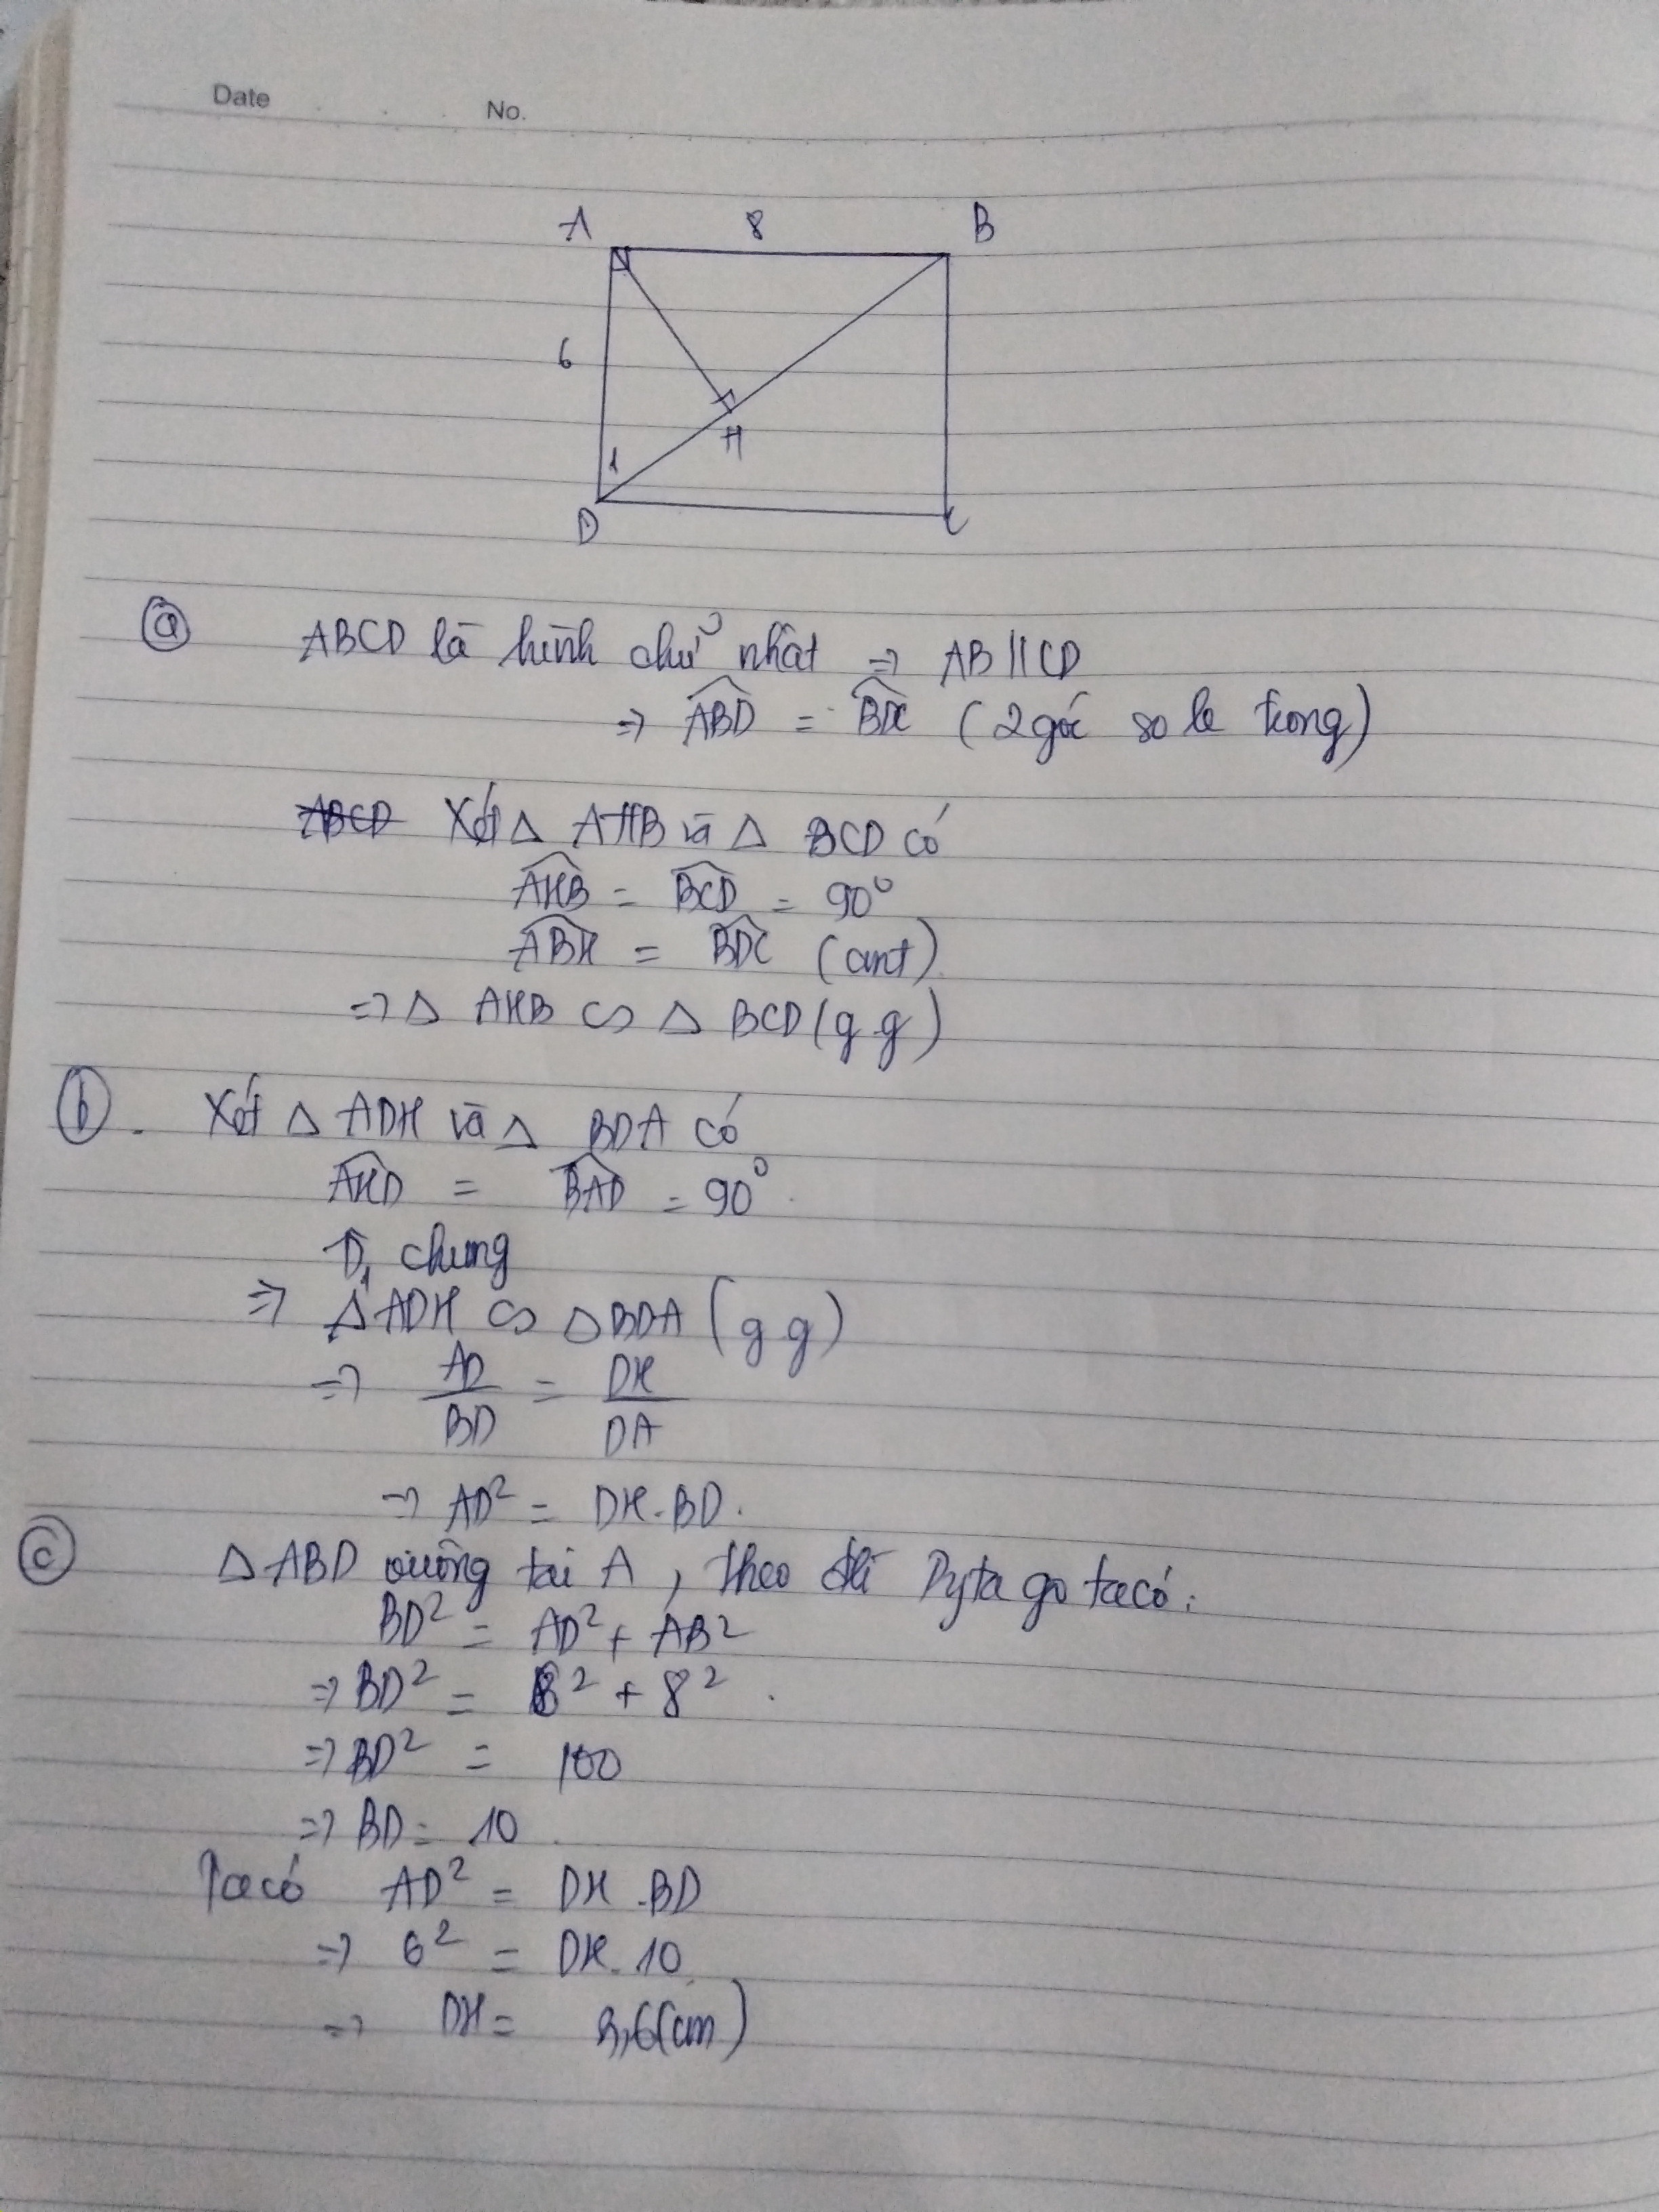 Date No.
A 8 B
6
H
1
D C
a ABCD là hình chữ nhật => AB // CD
=> ABD = BDC (2 góc so le trong)
ABCD Xét Δ AHB và Δ BCD có
AHB = BCD = 90°
ABH = BDC (cmt)
=> Δ AHB ∽ Δ BCD (g g)
b. Xét Δ ADH và Δ BDA có
AHD = BAD = 90°.
D̂₁ chung
=> Δ ADH ∽ Δ BDA (g g)
=> AD/BD = DH/DA
=> AD² = DH.BD.
c Δ ABD vuông tại A, theo đlí Pytago ta có:
BD² = AD² + AB²
=> BD² = 6² + 8².
=> BD² = 100
=> BD = 10.
Ta có AD² = DH.BD
=> 6² = DH.10
=> DH = 3,6(cm)